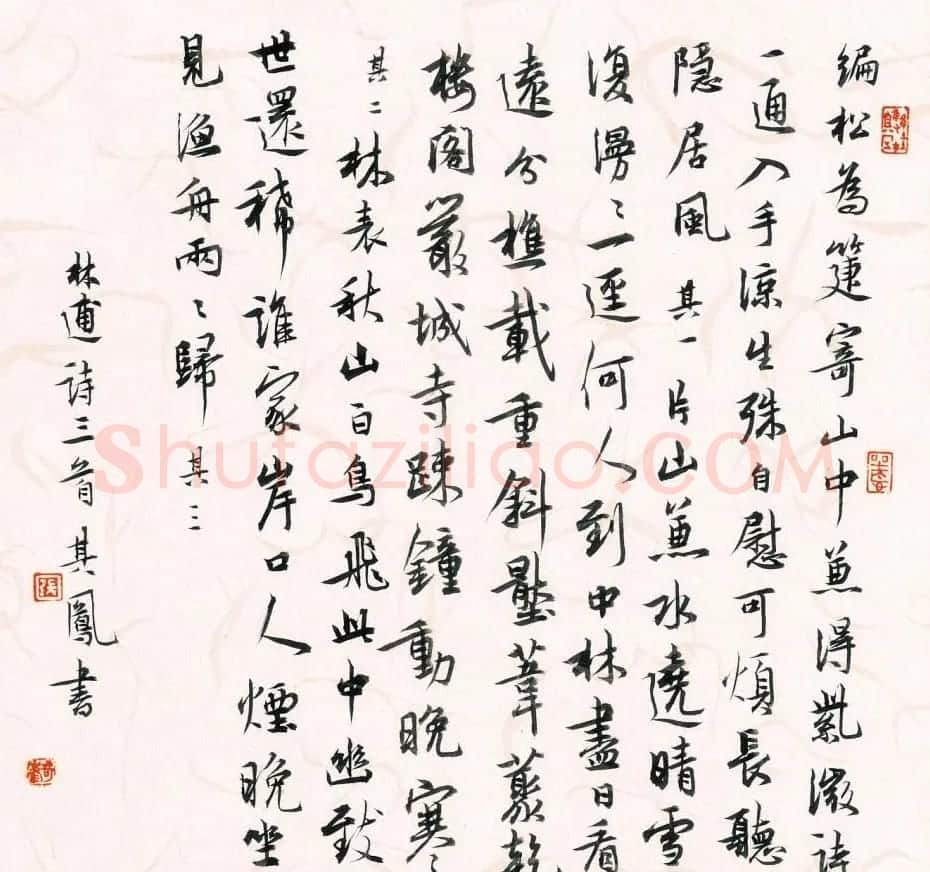 編松為箑寄山中兼得紫微詩
一通入手涼生殊自慰可煩長聽
隱居風 其一 片山兼水遶晴雪
復漫〻一逕何人到中林盡日看
遠分樵載重斜壓葦叢乾
樓閣嚴城寺疎鐘動晚寒〻
其二 林表秋山白鳥飛此中幽致
世還稀誰家岸口人煙晚坐
見漁舟兩〻歸 其三
林逋詩三首其鳳書
Shufaziliao.COM